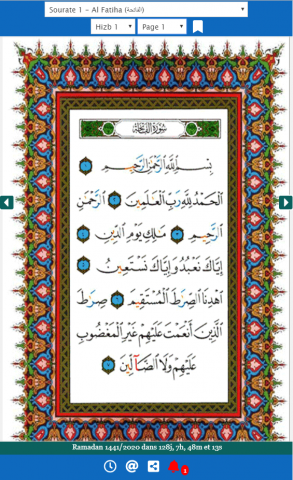 Sourate 1 - Al Fatiha (الفاتحة)
Hizb 1 Page 1
سورة الفاتحة
بِسْمِ اللَّهِ الرَّحْمَٰنِ الرَّحِيمِ ١
الْحَمْدُ لِلَّهِ رَبِّ الْعَالَمِينَ ٢ الرَّحْمَٰنِ
الرَّحِيمِ ٣ مَالِكِ يَوْمِ الدِّينِ ٤
إِيَّاكَ نَعْبُدُ وَإِيَّاكَ نَسْتَعِينُ ٥
اهْدِنَا الصِّرَاطَ الْمُسْتَقِيمَ ٦ صِرَاطَ
الَّذِينَ أَنْعَمْتَ عَلَيْهِمْ غَيْرِ الْمَغْضُوبِ
عَلَيْهِمْ وَلَا الضَّالِّينَ ٧
Ramadan 1441/2020 dans 128j, 7h, 48m et 13s
1